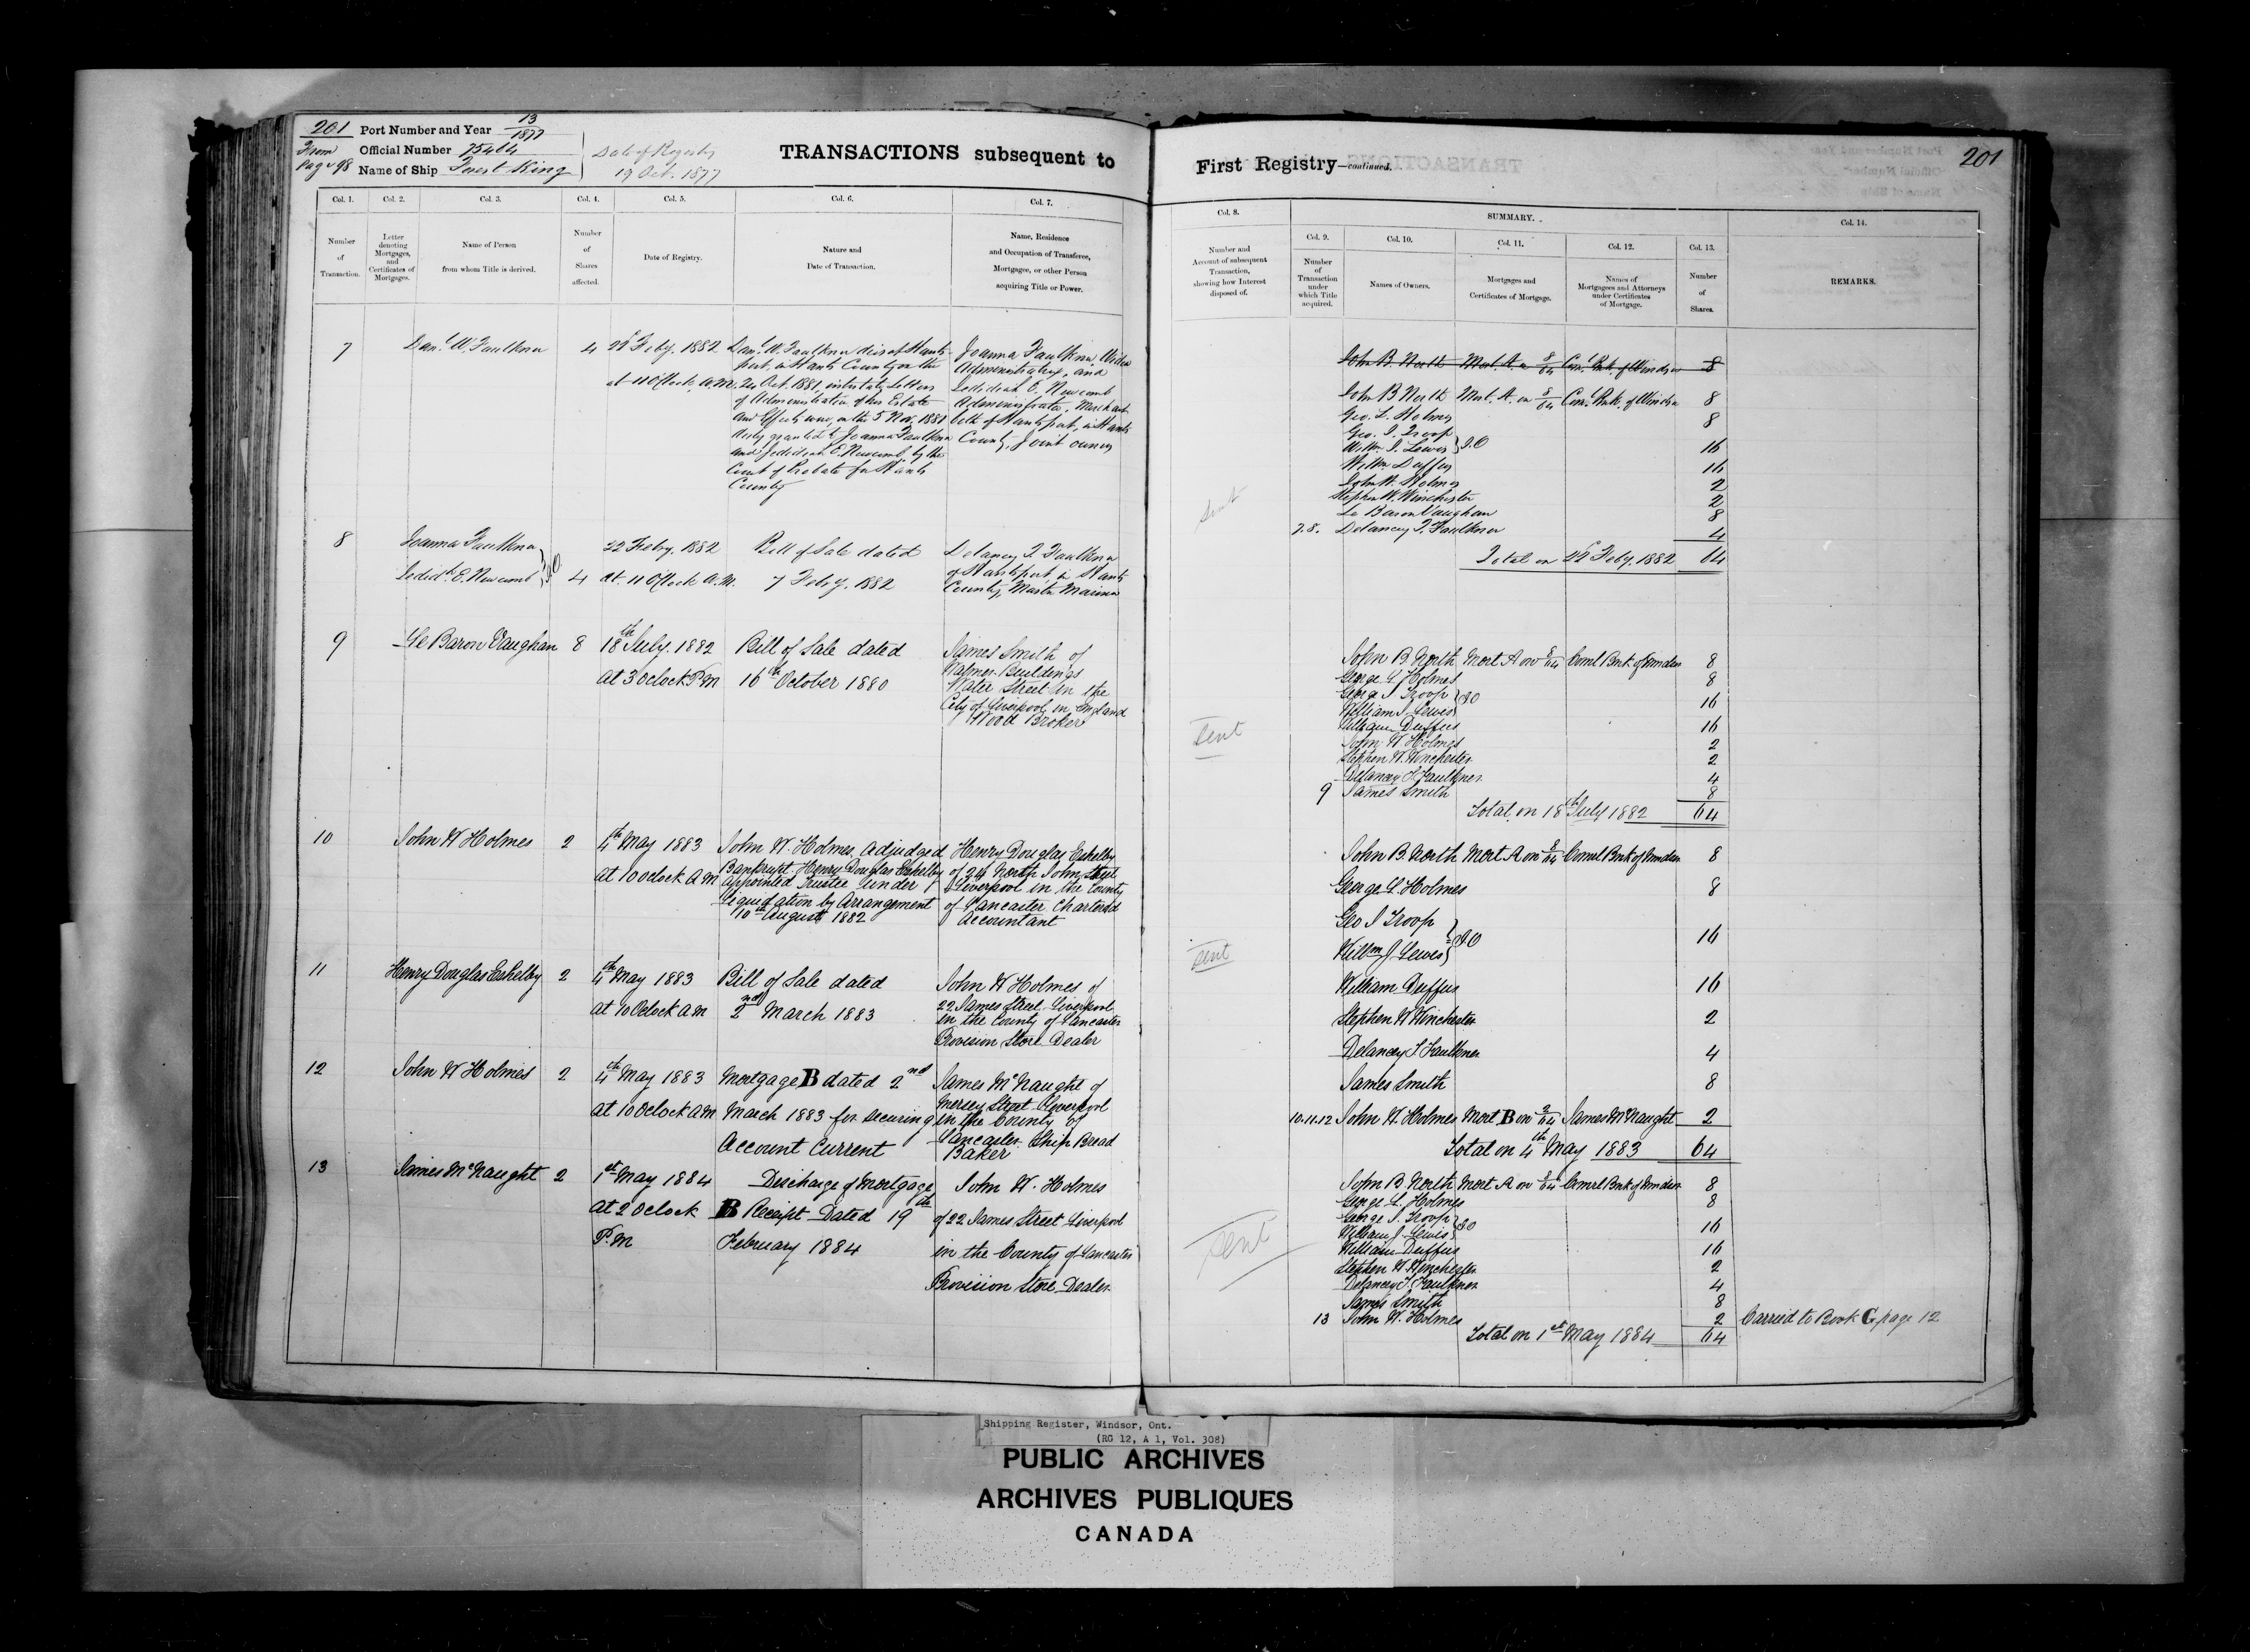 201 Port Number and Year 13/1877
From Official Number
Page 98 Name of Ship Forest King
Date of Registry
19 Oct. 1877
TRANSACTIONS subsequent to
Col. 1. Col. 2. Col. 3. Col. 4. Col. 5. Col. 6. Col. 7.
Number of Transaction.
Letter denoting Mortgages, and Certificates of Mortgages.
Name of Person from whom Title is derived.
Number of Shares affected.
Date of Registry.
Nature and Date of Transaction.
Name, Residence and Occupation of Transferee, Mortgagee, or other Person acquiring Title or Power.
7 Danl. W. Faulkner 4 22 Feby. 1882
at 11 O'Clock, A.M.
Danl. W. Faulkner of Hants
port, in Hants County on the
24 Oct. 1881, intestate, Letters
of Administration of his Estate
and Effects were, on the 5 Nov. 1881
duly granted to Joanna Faulkner
and Jedidiah E. Newcomb, by the
Court of Probate for Hants
County
Joanna Faulkner, Widow
Administratrix, and
Jedidiah E. Newcomb
Administrator, Merchant
both of Hantsport, in Hants
County, Joint owners
8 Joanna Faulkner
Jedidh. E. Newcomb } J.O 4
22 Feby. 1882
at 11 O'Clock A.M.
Bill of Sale dated
7 Feby. 1882
Delancey T. Faulkner
of Hantsport, in Hants
County, Master Mariner
9 Le Baron Vaughan 8 18th July. 1882
at 3 Oclock P.M
Bill of Sale dated
16th October 1880
James Smith of
Buildings
Water Street in the
City of Liverpool in England
Wood Broker
10 John W Holmes 2 4th May 1883
at 10 oclock A M
John W. Holmes, adjudged
Bankrupt Henry Douglas Eshelby
appointed Trustee under
Liquidation by Arrangement
10th August 1882
Henry Douglas Eshelby
of 24 North John Street
Liverpool in the County
of Lancaster Chartered
Accountant
11 Henry Douglas Eshelby 2 4th May 1883
at 10 Oclock A M
Bill of Sale dated
2nd March 1883
John W Holmes of
22 James Street Liverpool
in the County of Lancaster
Provision Store Dealer
12 John W Holmes 2 4th May 1883
at 10 Oclock A M
Mortgage B dated 2nd
March 1883 for securing
Account Current
James McNaught of
Mersey Street Liverpool
in the County of
Lancaster Ship Bread
Baker
13 James McNaught 2 1st May 1884
at 2 Oclock
P.M
Discharge of Mortgage
B Receipt Dated 19th
February 1884
John W. Holmes
of 22 James Street Liverpool
in the County of Lancaster
Provision Store Dealer
First Registry—continued.
201
Col. 8. SUMMARY. Col. 14.
Col. 9. Col. 10. Col. 11. Col. 12. Col. 13.
Number and Account of subsequent Transaction, showing how Interest disposed of.
Number of Transaction under which Title acquired.
Names of Owners.
Mortgages and Certificates of Mortgage.
Names of Mortgagees and Attorneys under Certificates of Mortgage.
Number of Shares.
REMARKS.
John B. North Mort. A. on 8/64 Coml. Bnk. of Windsor 8
John B North Mort. A. on 8/64 Coml. Bnk. of Windsor 8
Geo. L. Holmes 8
Geo. J. Troop
Willm. J. Lewis } J.O 16
Willm Duffus 16
John W. Holmes 2
Stephen W. Winchester 2
Le Baron Vaughan 8
7.8. Delancey T. Faulkner 4
Total on 22 Feby. 1882 64
sent
John B. North Mort A on 8/64 Coml Bnk of Windsor 8
George L Holmes 8
George J Troop
William J Lewis } JO 16
William Duffus 16
John W Holmes 2
Stephen W. Winchester 2
Delancey T Faulkner 4
9 James Smith 8
Total on 18th July 1882 64
sent
John B. North Mort A on 8/64 Coml Bnk of Windsor 8
George L. Holmes 8
Geo J Troop
Willm J Lewis } J.O 16
William Duffus 16
Stephen W Winchester 2
Delancey T Faulkner 4
James Smith 8
10.11.12 John W. Holmes Mort B on 2/64 James McNaught 2
Total on 4th May 1883 64
sent
John B North Mort A on 8/64 Comrl Bnk of Windsor 8
George L. Holmes 8
George J. Troop
William J Lewis } JO 16
William Duffus 16
Stephen W Winchester 2
Delancey T. Faulkner 4
James Smith 8
13 John W. Holmes 2
Total on 1st May 1884 64
sent
Carried to Book G page 12
Shipping Register, Windsor, Ont.
(RG 12, A 1, Vol. 308)
PUBLIC ARCHIVES
ARCHIVES PUBLIQUES
CANADA